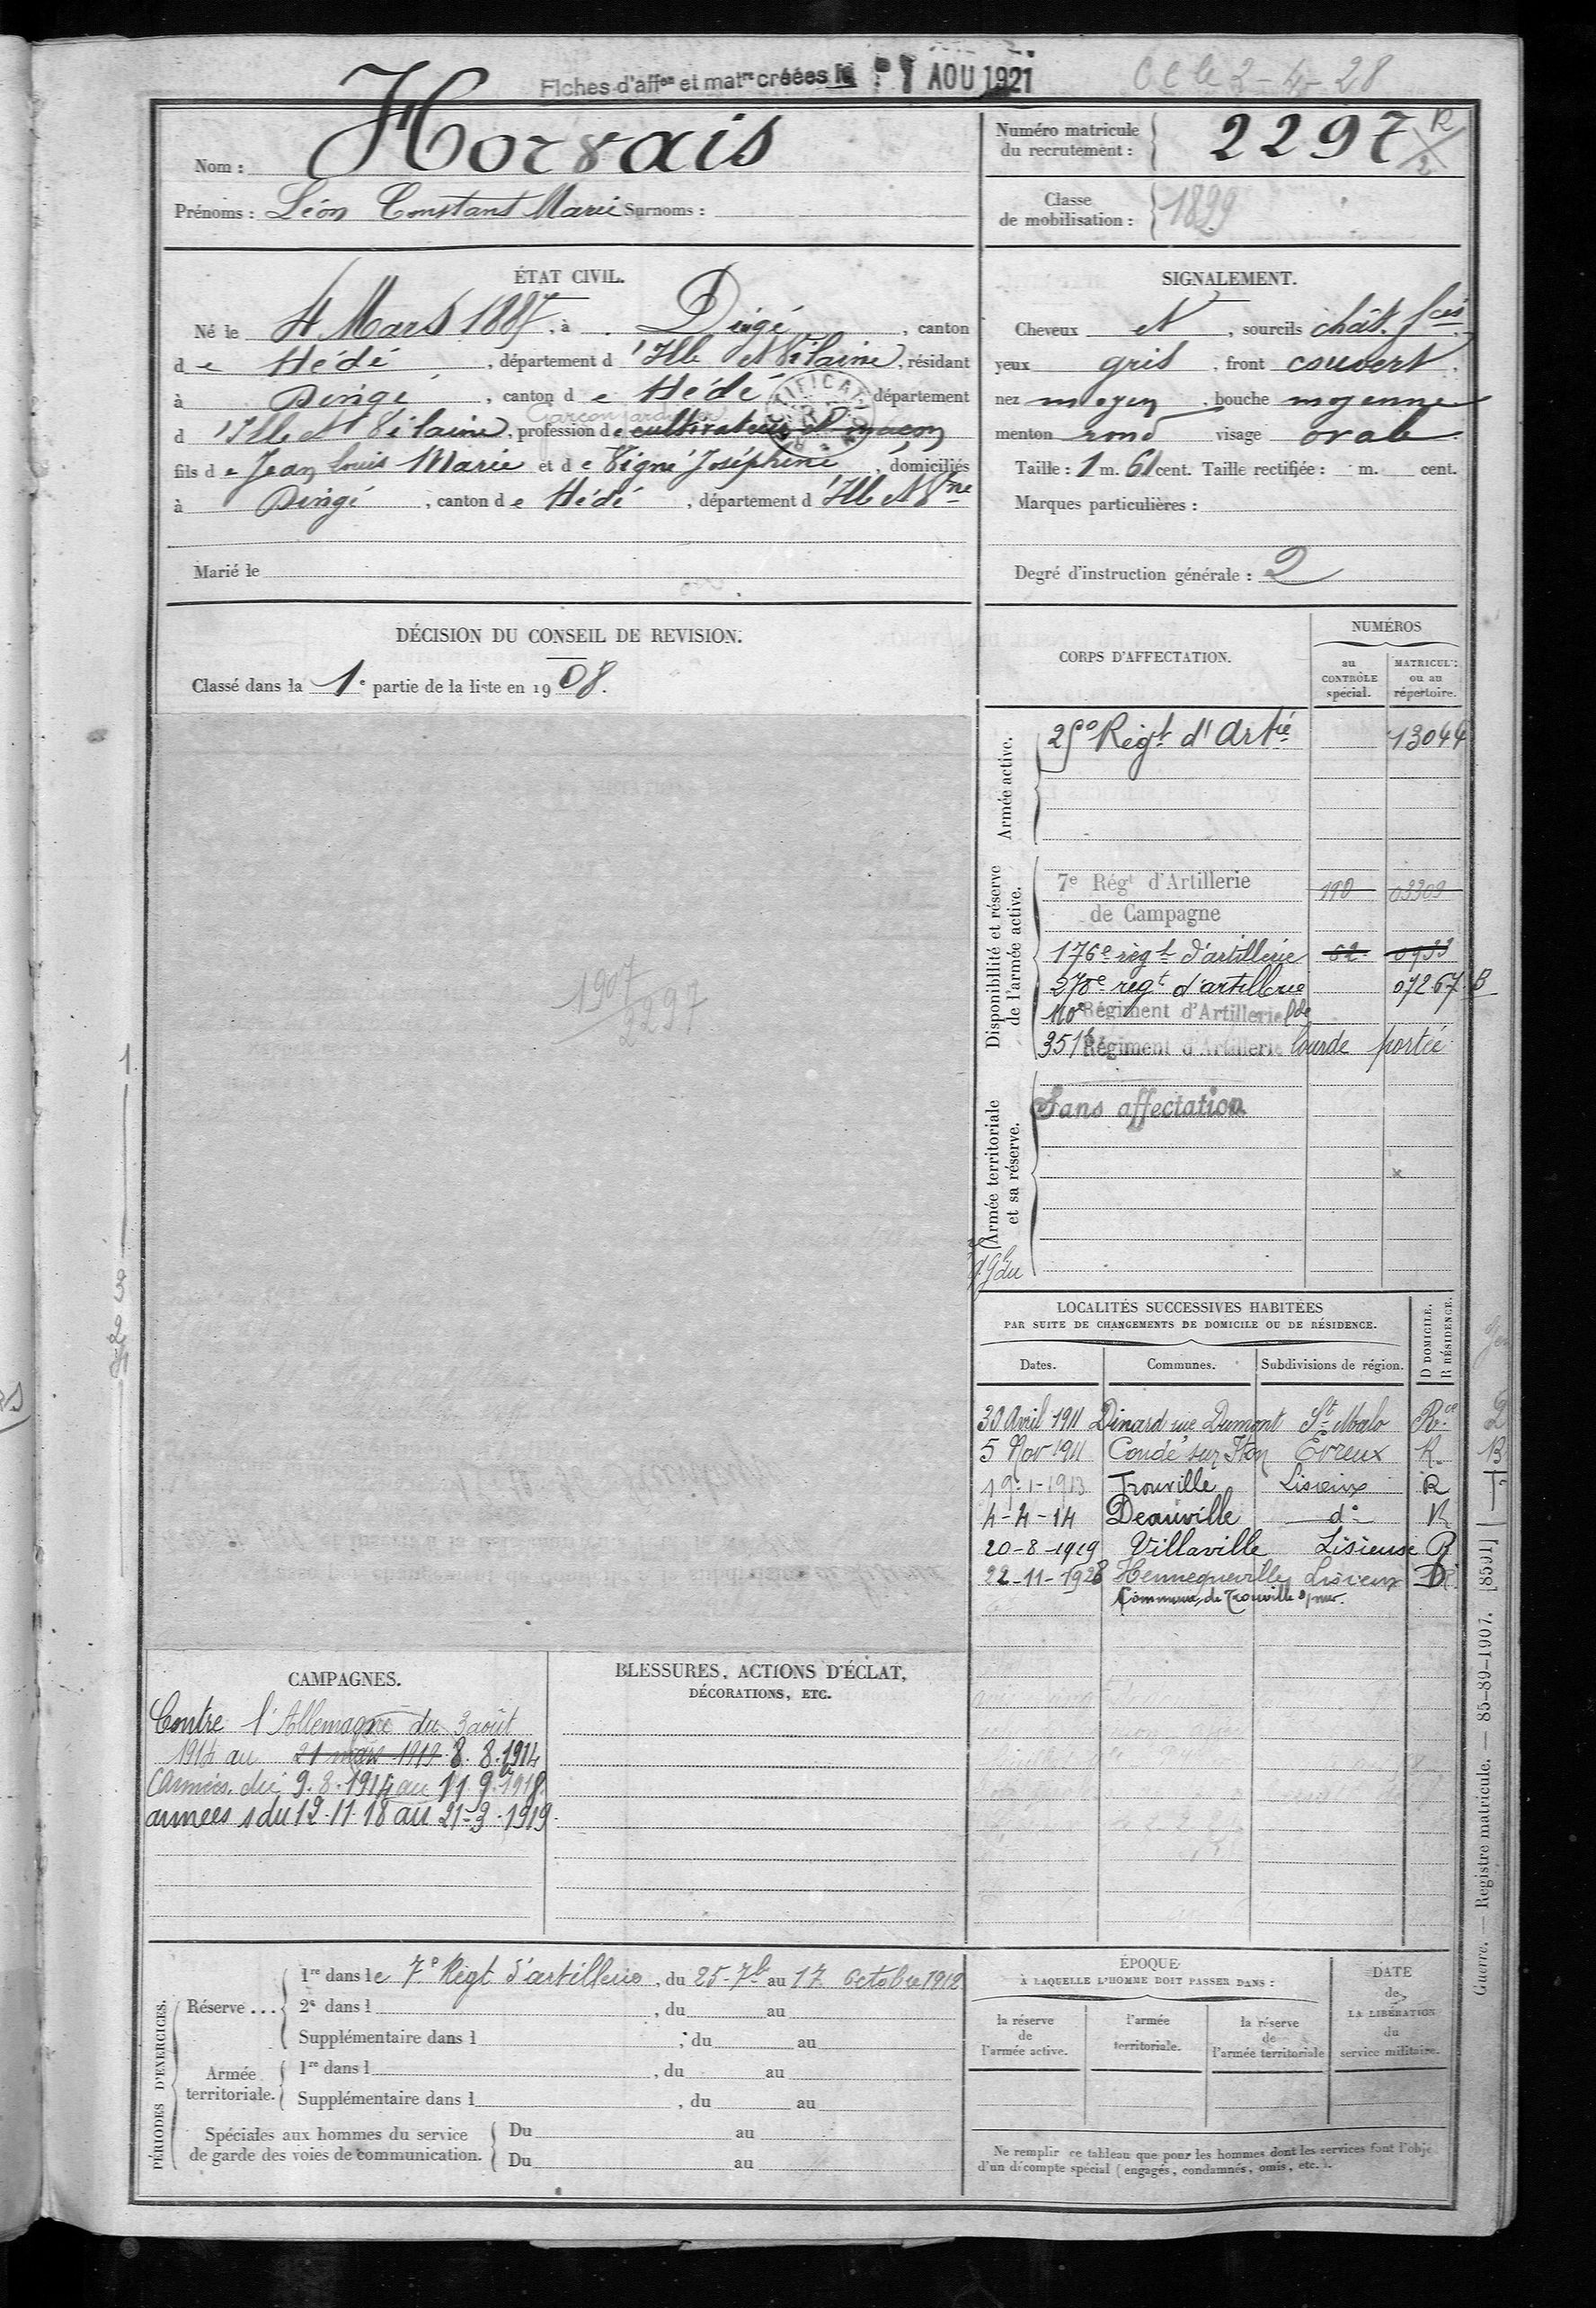 Fiches d'affon et matre créées le 1 AOU 1921
C C le 2-4-28
Nom : Horvais
Prénoms : Léon Constant Marie Surnoms :
Numéro matricule du recrutement : 2297 R/2
Classe de mobilisation : 1899
ÉTAT CIVIL.
Né le 4 Mars 1887, à Dingé, canton
de Hédé, département d'Ille et Vilaine, résidant
à Dingé, canton de Hédé département
d'Ille et Vilaine, profession de cultivateur et maçon
Garçon jardinier
fils de Jean Louis Marie et de Vigné Joséphine, domiciliés
à Dingé, canton de Hédé, département d'Ille et Vne
Marié le
SIGNALEMENT.
Cheveux et, sourcils chât. fcés
yeux gris, front couvert
nez moyen, bouche moyenne
menton rond visage ovale
Taille : 1 m. 61 cent. Taille rectifiée : m. cent.
Marques particulières :
Degré d'instruction générale : 2
DÉCISION DU CONSEIL DE REVISION.
Classé dans la 1e partie de la liste en 1908.
1907
2297
CORPS D'AFFECTATION.
NUMÉROS
au CONTRÔLE spécial.
MATRICULE ou au répertoire.
Armée active.
Régt d'Artie 13044
Disponibilité et réserve de l'armée active.
7e Régt d'Artillerie de Campagne 190 03309
176e régt d'artillerie 62 0933
278e régt d'artillerie 07267 B
110e Régiment d'Artillerie Lde
351e Régiment d'Artillerie lourde portée
Armée territoriale et sa réserve.
Sans affectation
LOCALITÉS SUCCESSIVES HABITÉES
PAR SUITE DE CHANGEMENTS DE DOMICILE OU DE RÉSIDENCE.
D DOMICILE. R RÉSIDENCE.
Dates. Communes. Subdivisions de région.
30 Avril 1911 Dinard rue Dumont St Malo Rce
5 Nov 1911 Condé sur Iton Evreux R.
19-1-1913 Trouville Lisieux R
4-4-14 Deauville do R
20-8-1919 Villaville Lisieux R
22-11-1928 Hennequeville Lisieux D
Commune de Trouville s/mer.
CAMPAGNES.
Contre l'Allemagne du 3 août
1914 au 21 mars 1919 8.8.1914
Armées du 9.8.1914 au 11 9bre 1918
armées 1 du 12.11.18 au 21-3-1919.
BLESSURES, ACTIONS D'ÉCLAT,
DÉCORATIONS, ETC.
PÉRIODES D'EXERCICES.
Réserve ...
1re dans le 7e Régt d'artillerie, du 25-7b au 17 Octobre 1912
2e dans l, du au
Supplémentaire dans l, du au
Armée territoriale.
1re dans l, du au
Supplémentaire dans l, du au
Spéciales aux hommes du service
de garde des voies de communication.
Du au
Du au
ÉPOQUE
À LAQUELLE L'HOMME DOIT PASSER DANS :
la réserve de l'armée active.
l'armée territoriale.
la réserve de l'armée territoriale
DATE de LA LIBÉRATION du service militaire.
Ne remplir ce tableau que pour les hommes dont les services font l'obje
d'un décompte spécial (engagés, condamnés, omis, etc.).
Guerre. — Registre matricule. — 85-89-1907. [8591]